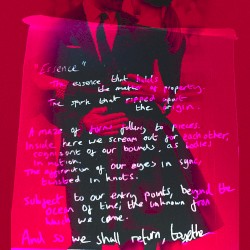 "Essence"
The essence that holds
the matter of properly.
The spark that ripped apart
the origin.
A maze of forms falling to pieces.
Inside here we scream out for each other,
cognisant of our bounds, as bodies
in motion.
The aggravation of our ages in sync,
twisted in knots.
Subject to our entry points, beyond the
ocean of time, the unknown from
which we came.
And so we shall return, together